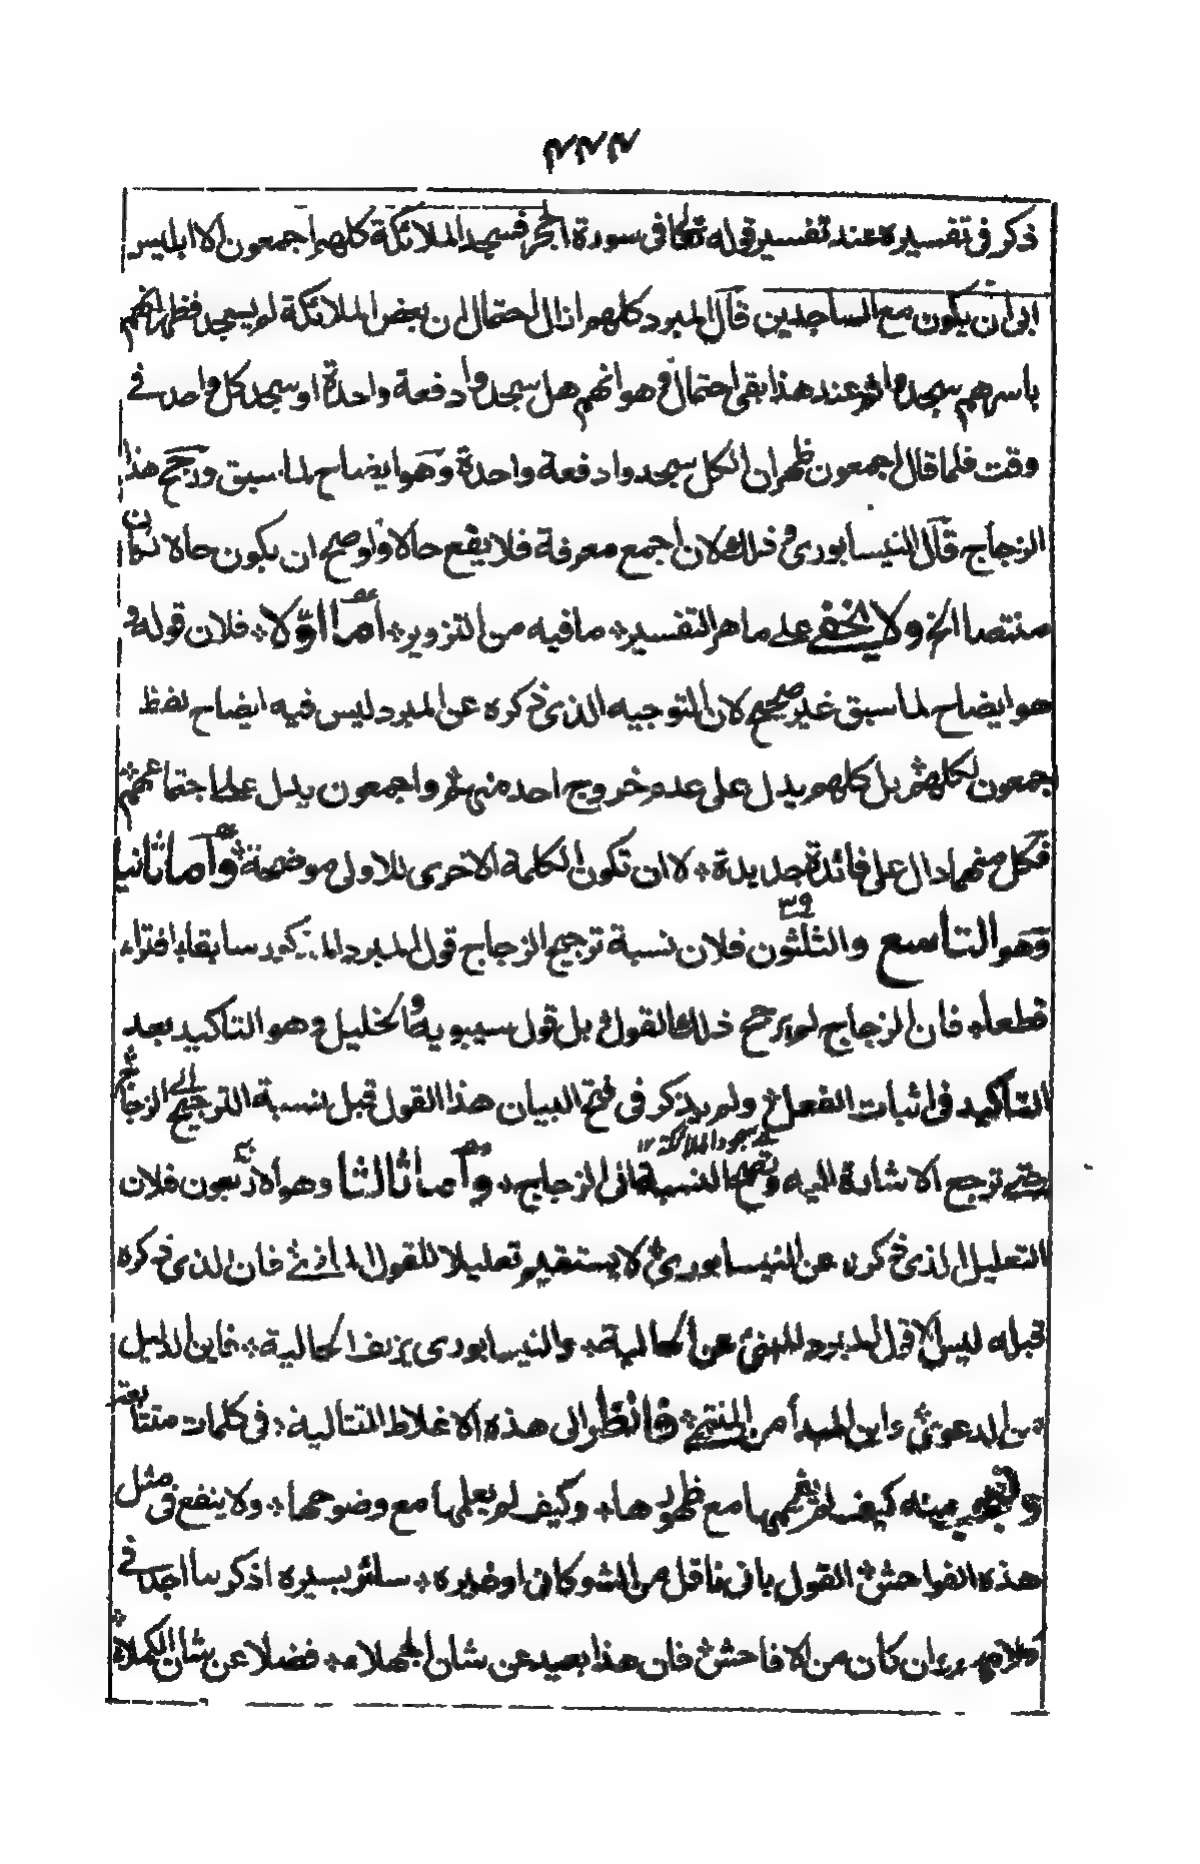 ٢٢٢
ذكر في تفسيره عند تفسير قوله تعالى في سورة الحجر فسجد الملائكة كلهم اجمعون الا ابليس
ابى ان يكون مع الساجدين قال المبرد كلهم ازال احتمال ان بعض الملائكة لم يسجد فظهر انهم
باسرهم سجدوا ثم عند هذا بقي احتمال وهو انهم هل سجدوا دفعة واحدة او سجد كل واحد في
وقت فلما قال اجمعون ظهر ان الكل سجدوا دفعة واحدة وهو ايضاح لما سبق ورجح هذا
الزجاج قال النيسابوري وذلك لان اجمع معرفة فلا يقع حالا ولو صح ان يكون حالا لكان
منتصبا الخ ولا يخفى على ماهر التفسير ما فيه من التزوير اما اولا فلان قوله و
هو ايضاح لما سبق غير صحيح لان التوجيه الذي ذكره عن المبرد ليس فيه ايضاح لفظ
اجمعون لكلهم بل كلهم يدل على عدم خروج احد منهم واجمعون يدل على اجتماعهم
فكل منهما دال على فائدة جديدة لا ان تكون الكلمة الاخرى للاولى موضحة واما ثانيا
وهو التاسع والثلثون ٣٩ فلان نسبة ترجيح الزجاج قول المبرد المذكور سابقا افتراء
قطعا فان الزجاج لم يرجح ذلك القول بل قول سيبويه والخليل وهو التاكيد بعد
التاكيد في اثبات الفعل ولم يذكر في فتح البيان هذا القول قبل نسبة الترجيح الى الزجاج
حتى ترجع الاشارة اليه وتصح النسبة الى الزجاج واما ثالثا وهو الاربعون فلان
التعليل الذي ذكره عن النيسابوري لا يستقيم تعليلا للقول فان الذي ذكره
قبله ليس الا قول المبرد عن الحالية والنيسابوري يزيف الحالية فاين الدليل
من الدعوى واين المبدأ من المنتهى فانظر الى هذه الاغلاط المتتالية في كلمات متتابعة
كيف لم يفهمها مع ظهورها وكيف لم يعلمها مع وضوحها ولا ينفع في مثل
هذه الفواحش القول باني ناقل من الشوكاني او غيره سائر بسيره اذكر ما اجد في
كلامهم وان كان من الا فاحش فان هذا بعيد عن شان الجهلاء فضلا عن شان الكملاء